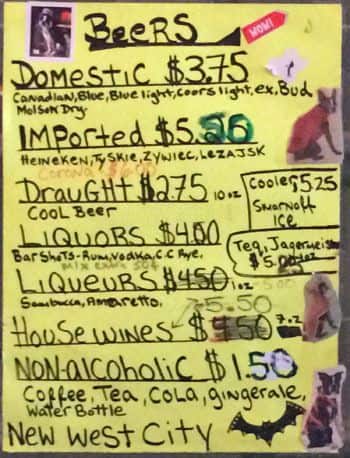 BEERS
WOW!
DOMESTIC $3.75
Canadian, Blue, Blue light, Coors light, ex, Bud
Molson Dry.
IMPORTED $5.
HEINEKEN, TYSKIE, ZYWIEC, LEZAJSK
Corona
DRAUGHT $2.75 10oz
COOL Beer
Cooler $5.25
Smirnoff
ICE
LIQUORS $4.00
Bar Shots - Rum, Vodka, C.C Rye.
Teq, Jagermeister
$5.00 1oz
LIQUEURS $4.50 1oz
Sambucca, Amaretto.
5.50
HOUSE WINES $ 50 7oz
NON-alcoholic $1.50
Coffee, Tea, Cola, gingerale,
Water Bottle
NEW WEST CITY